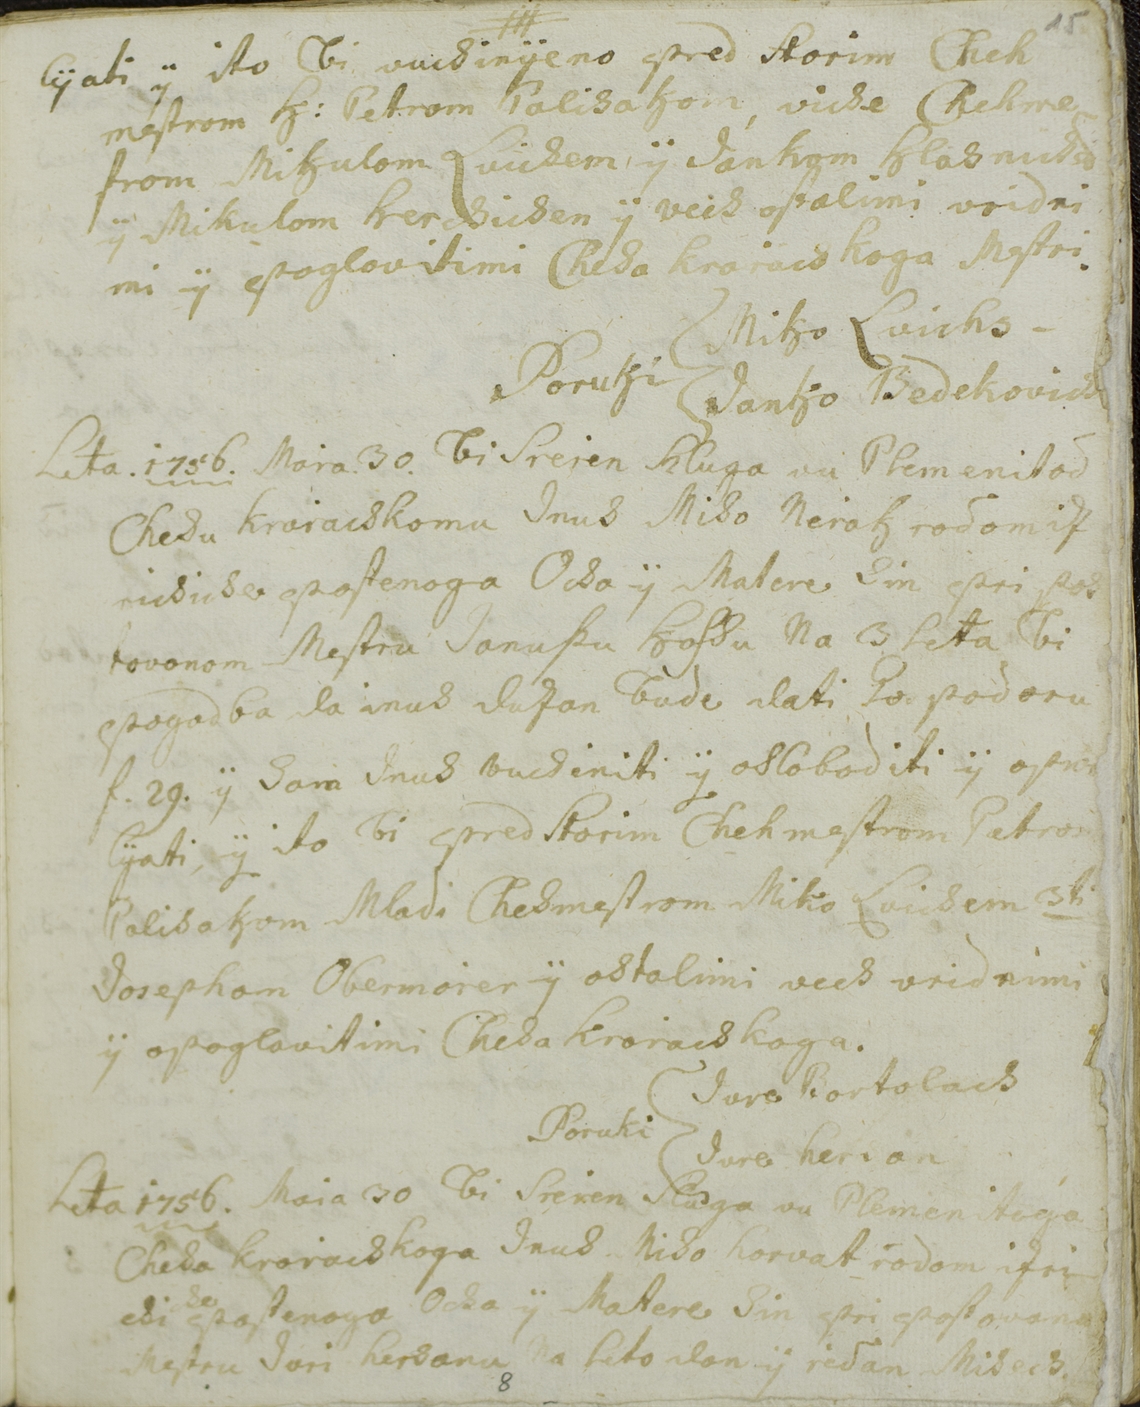 15
lÿati ÿ ito Bi vuchinÿeno pred Starim Cheh
mestrom h: Petrom Palisakom, viche Chehme
strom Mikulom Lvichem, ÿ Jankom Glasnich
ÿ Mikulom herchichen ÿ vech ostalimi vridni
mi ÿ poglavitimi Cheha kraiachkoga Mestri.
Miko Lvichs -
Poruki
Janko Bedekovich
Leta. 1756. Maia. 30. Bi Sreien Sluga vu Plemenitod
Chehu kraiachkomu Inus Miso Nerak rodom iz
richiche postenoga Ocha ÿ Matere Sin pri pos
tovanom Mestru Janussu Kossu Na 3 Leta Bi
pogodba da inus dusan Bude dati Po podoru
f. 29. ÿ Sam Inus vuchiniti ÿ osloboditi ÿ opra
lÿati, ÿ ito Bi pred Starim Chehmestrom Petrom
Palisakom Mladi Chehmestrom Miko Lvichem 3ti
Josephom Obermaier ÿ ostalimi vech vridnimi
ÿ poglavitimi Cheha kraiachkoga.
Jure Bortolach
Poruki
Jure herian
Leta 1756. Maia 30 Bi Sreien Sluga vu Plemenitoga
Cheha kraiachkoga Inus Miso horvat rodom izri
chi che postenoga Ocha ÿ Matere Sin pri postovanom
Mestru Juri hersanu Na Leto dan ÿ iedan Misech.
8